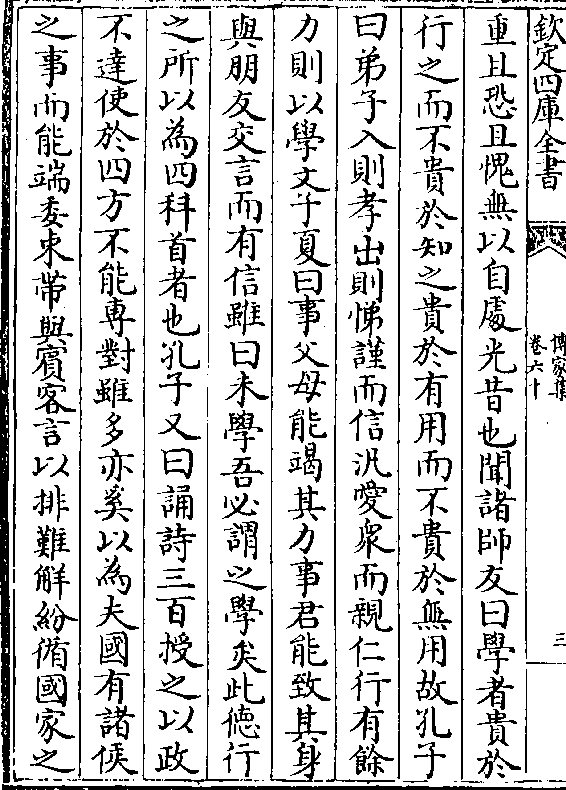 欽定四庫全書
傳家集
卷六十
三
重且恐且愧無以自處光昔也聞諸師友曰學者貴於
行之而不貴於知之貴於有用而不貴於無用故孔子
曰弟子入則孝出則悌謹而信汎愛衆而親仁行有餘
力則以學文子夏曰事父母能竭其力事君能致其身
與朋友交言而有信雖曰未學吾必謂之學矣此徳行
之所以為四科首者也孔子又曰誦詩三百授之以政
不達使於四方不能専對雖多亦奚以為夫國有諸侯
之事而能端委束帶與賓客言以排難解紛循國家之